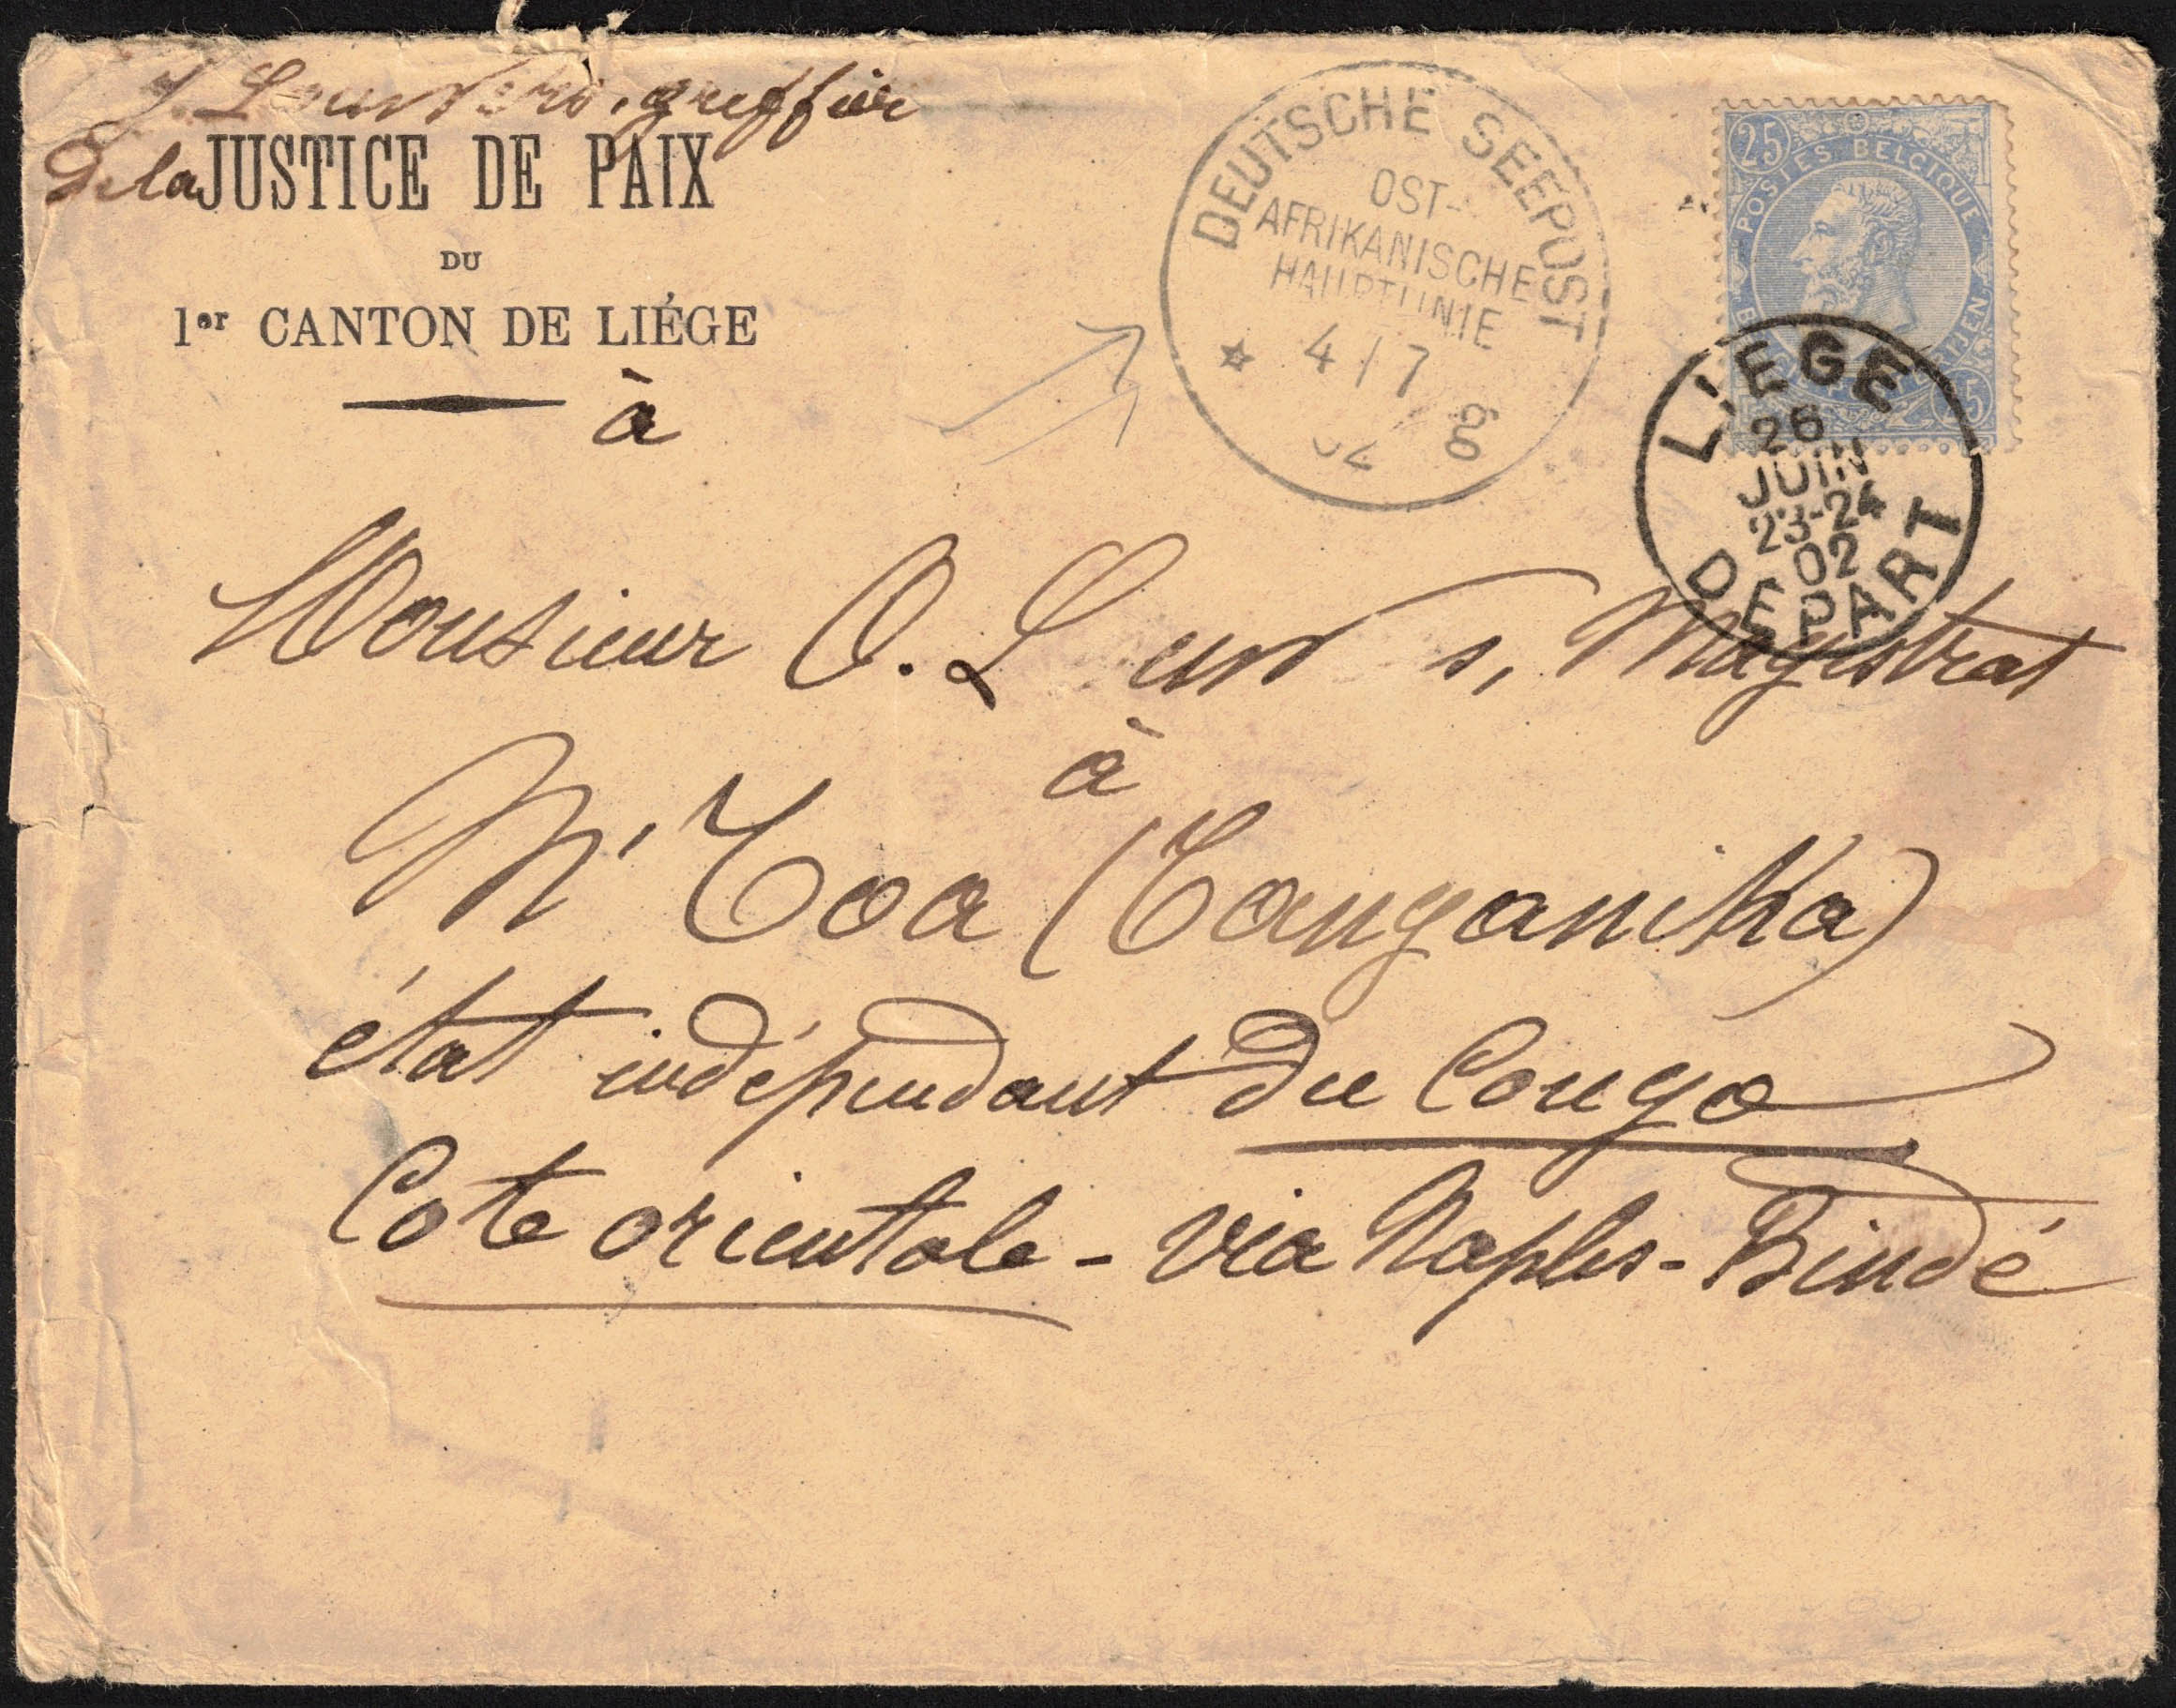 greffier
de la JUSTICE DE PAIX
DU
1er CANTON DE LIÉGE
à
DEUTSCHE SEEPOST
OST-
AFRIKANISCHE
HAUPTLINIE
* 4/7
02 g
25
POSTES BELGIQUE
25
LIEGE
26
JUIN
23-24
02
DEPART
Monsieur O. L eur s, Magistrat
à
M'Toa (Tanganika)
état indépendant du Congo
Cote orientale - via Naples - Bindé